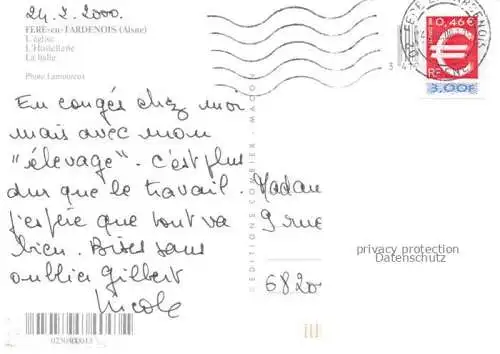 24.2.2000.
FERE-en-TARDENOIS (Aisne)
L'église
L'Hostellerie
La halle
Photo Lamoureux
En congés chez moi
mais avec mon
"élevage". C'est plus
dur que le travail.
J'espère que tout va
bien. Bises sans
oublier Gilbert
Nicole
EDITIONS COMBIER - MACON
0,46 €
RF
3,00F
Madam
9 rue
6820
privacy protection
Datenschutz